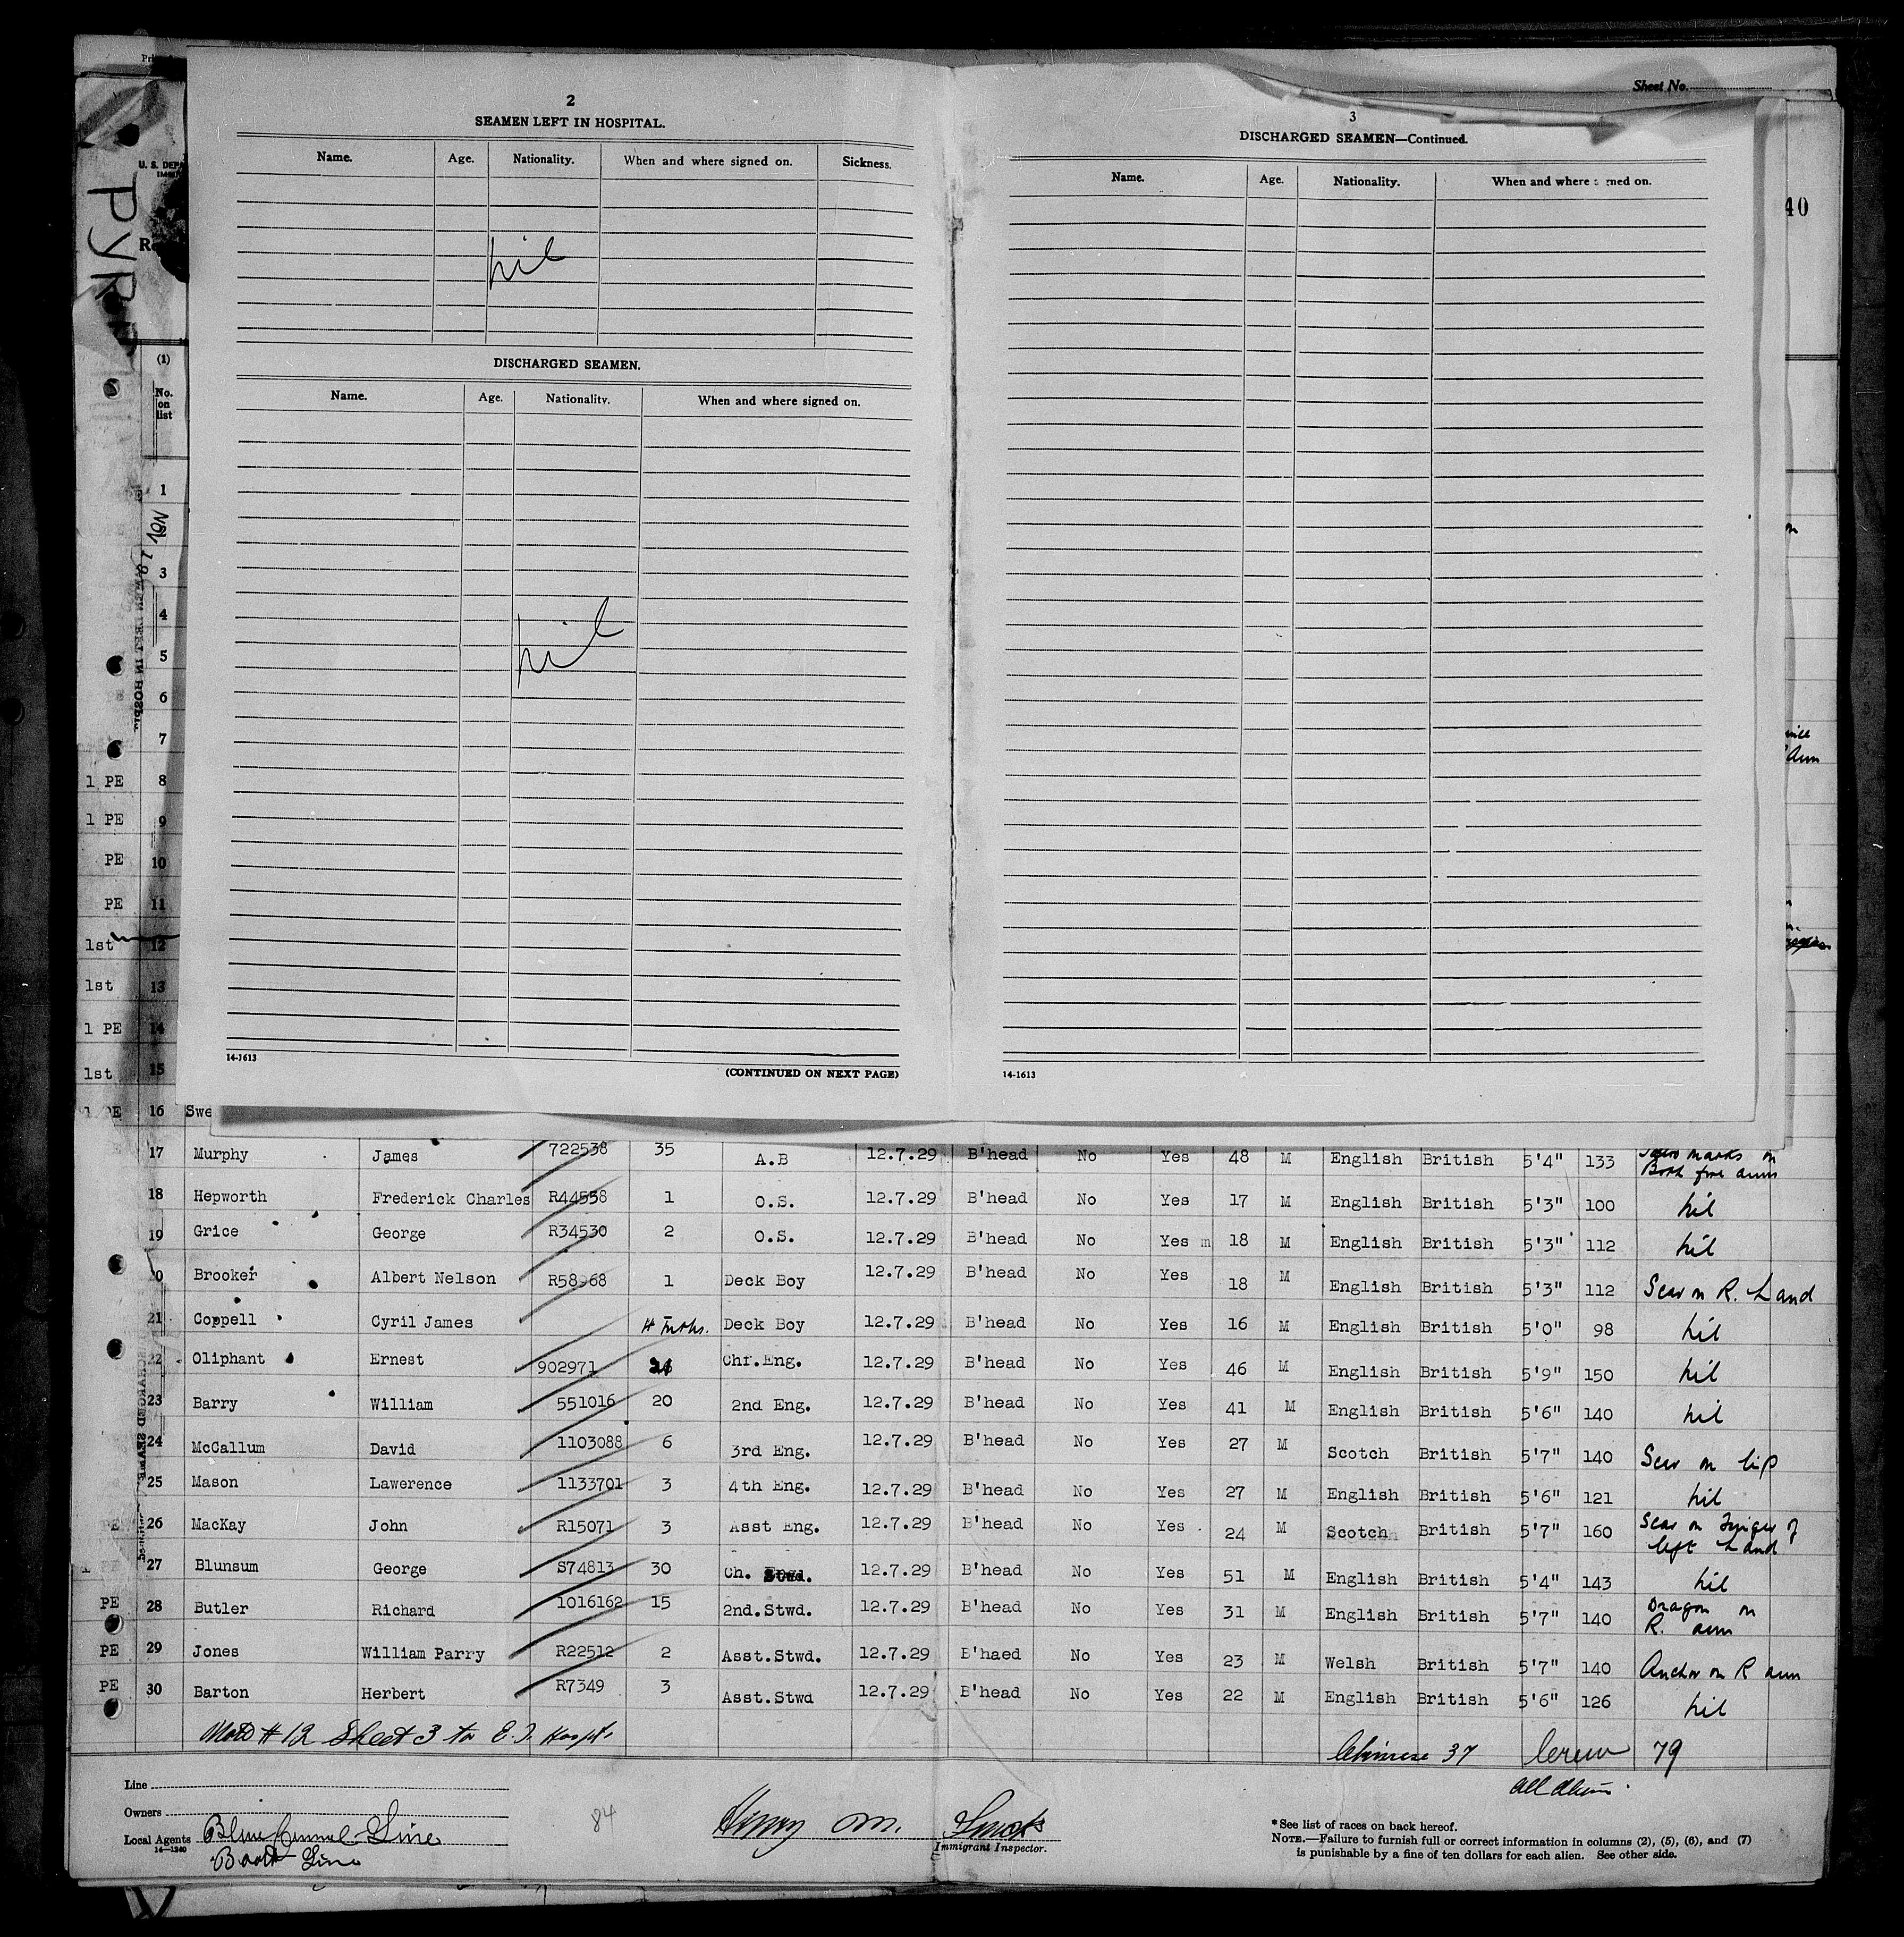 Sheet No.
2
SEAMEN LEFT IN HOSPITAL.
Name. Age. Nationality. When and where signed on. Sickness.
nil
DISCHARGED SEAMEN.
Name. Age. Nationality. When and where signed on.
nil
14-1613
(CONTINUED ON NEXT PAGE)
3
DISCHARGED SEAMEN—Continued.
Name. Age. Nationality. When and where signed on.
14-1613
40
PYR
(1)
No.
on
list
1
NOV
3
4
5
6
7
1 PE 8
1 PE 9
PE 10
PE 11
1st 12
1st 13
1 PE 14
1st 15
1 PE 16 Swe
17 Murphy James 722538 35 A.B 12.7.29 B'head No Yes 48 M English British 5'4" 133 marks on Both fore arms
18 Hepworth Frederick Charles R44558 1 O.S. 12.7.29 B'head No Yes 17 M English British 5'3" 100 nil
19 Grice George R34530 2 O.S. 12.7.29 B'head No Yes m 18 M English British 5'3" 112 nil
20 Brooker Albert Nelson R58968 1 Deck Boy 12.7.29 B'head No Yes 18 M English British 5'3" 112 Scar on R. hand
21 Coppell Cyril James Deck Boy 12.7.29 B'head No Yes 16 M English British 5'0" 98 nil
22 Oliphant Ernest 902971 Chf.Eng. 12.7.29 B'head No Yes 46 M English British 5'9" 150 nil
23 Barry William 551016 20 2nd Eng. 12.7.29 B'head No Yes 41 M English British 5'6" 140 nil
24 McCallum David 1103088 6 3rd Eng. 12.7.29 B'head No Yes 27 M Scotch British 5'7" 140 Scar on lip
25 Mason Lawerence 1133701 3 4th Eng. 12.7.29 B'head No Yes 27 M English British 5'6" 121 nil
PE 26 MacKay John R15071 3 Asst Eng. 12.7.29 B'head No Yes 24 M Scotch British 5'7" 160 Scar on Finger of left hand
27 Blunsum George S74813 30 Ch. Stwd. 12.7.29 B'head No Yes 51 M English British 5'4" 143 nil
PE 28 Butler Richard 1016162 15 2nd.Stwd. 12.7.29 B'head No Yes 31 M English British 5'7" 140 Dragon on R. arm
PE 29 Jones William Parry R22512 2 Asst.Stwd. 12.7.29 B'haed No Yes 23 M Welsh British 5'7" 140 Anchor on R arm
PE 30 Barton Herbert R7349 3 Asst.Stwd 12.7.29 B'head No Yes 22 M English British 5'6" 126 nil
# 12 Sheet 3 to E.I. Hospt. Chinese 37 Crew 79
Line
Owners
Local Agents Blue Funnel Line
14—1240
Booth Line
84
Henry M.
Immigrant Inspector.
* See list of races on back hereof.
NOTE.—Failure to furnish full or correct information in columns (2), (5), (6), and (7)
is punishable by a fine of ten dollars for each alien. See other side.